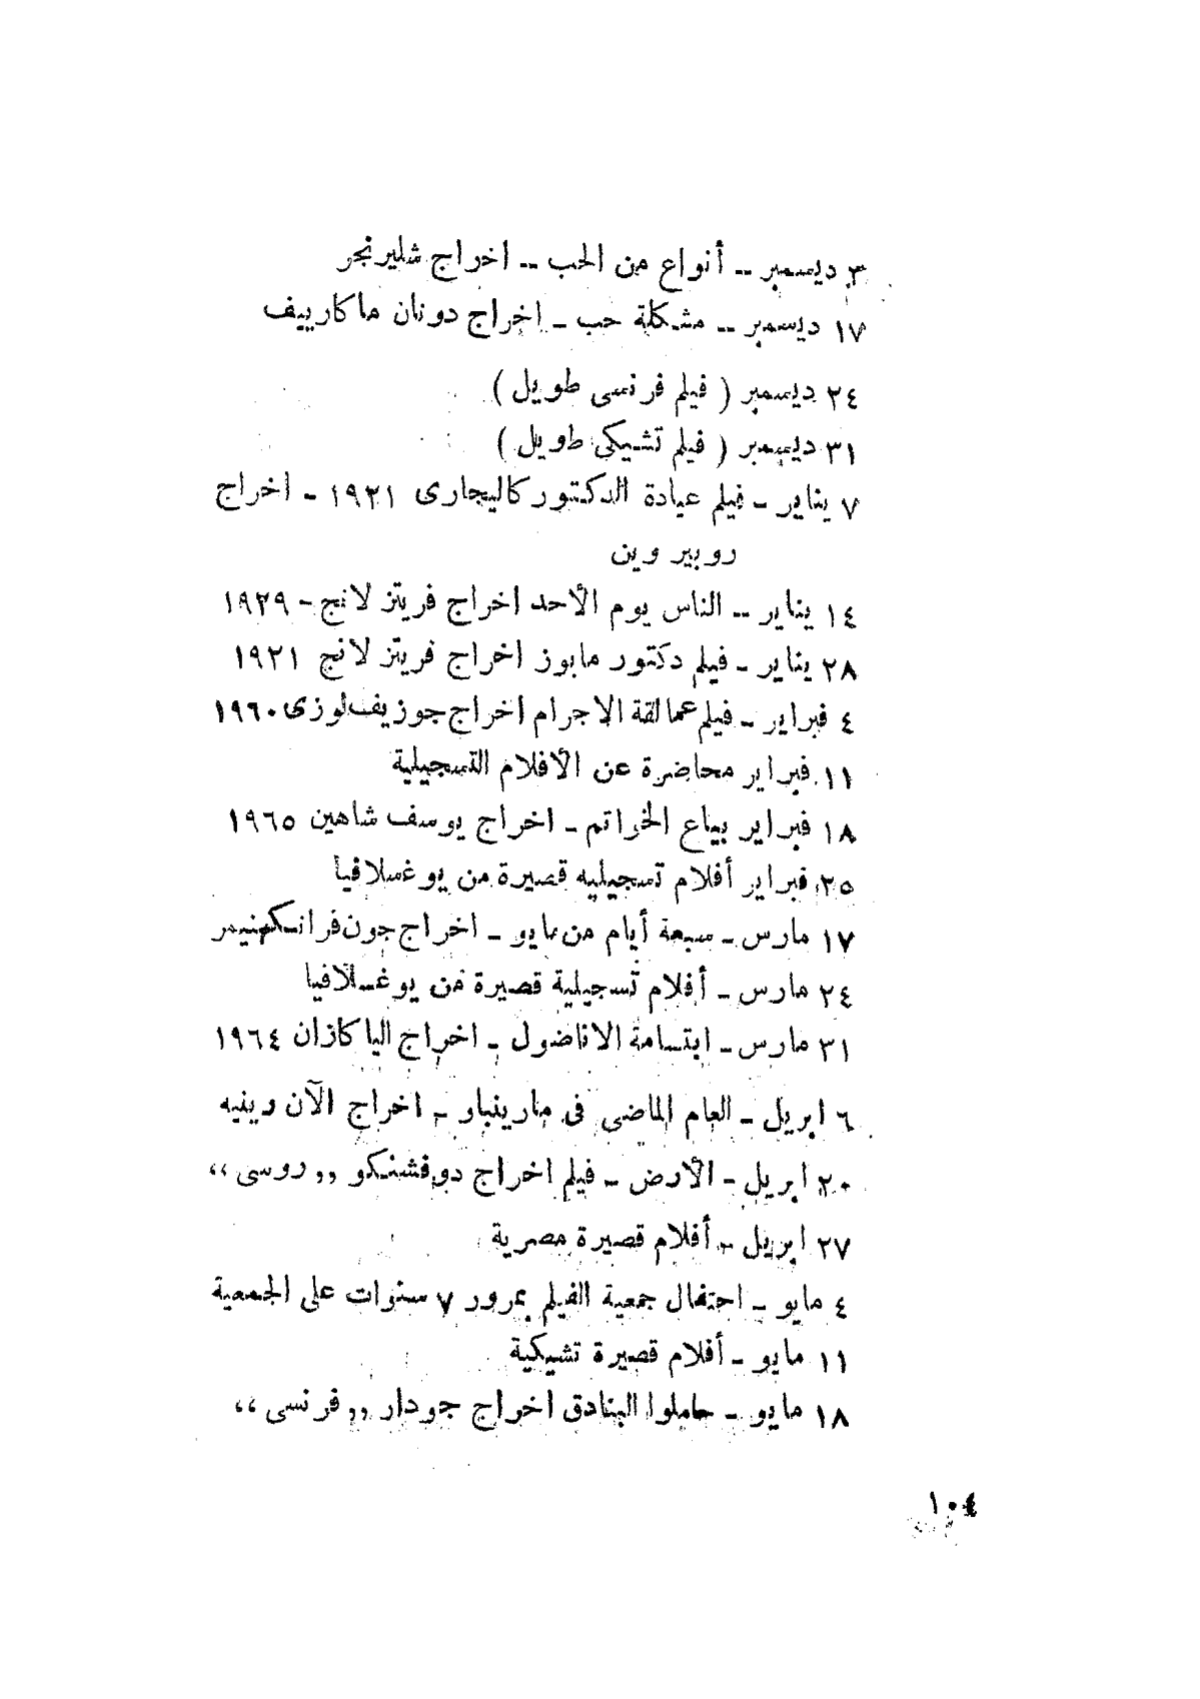 ٣ ديسمبر -- أنواع من الحب -- اخراج شليرنجر
١٧ ديسمبر -- مشكلة حب - اخراج دونان ماكارييف
٢٤ ديسمبر ( فيلم فرنسى طويل )
٣١ ديسمبر ( فيلم تشيكى طويل )
٧ يناير - فيلم عيادة الدكتور كاليجارى ١٩٢١ - اخراج
روبير وين
١٤ يناير -- الناس يوم الأحد اخراج فريتز لانج - ١٩٢٩
٢٨ يناير - فيلم دكتور مابوز اخراج فريتز لانج ١٩٢١
٤ فبراير - فيلم عمالقة الاجرام اخراج جوزيف لوزى ١٩٦٠
١١ فبراير محاضرة عن الأفلام التسجيلية
١٨ فبراير بياع الخواتم - اخراج يوسف شاهين ١٩٦٥
٢٥ فبراير أفلام تسجيليه قصيرة من يوغسلافيا
١٧ مارس - سبعة أيام من مايو - اخراج جون فرانكهنيمر
٢٤ مارس - أفلام تسجيلية قصيرة من يوغسلافيا
٣١ مارس - ابتسامة الاناضول - اخراج اليا كازان ١٩٦٤
٦ ابريل - العام الماضى فى مارينباد - اخراج الآن رينيه
٢٠ ابريل - الأرض - فيلم اخراج دوفشنكو ,, روسى ،،
٢٧ ابريل - أفلام قصيرة مصرية
٤ مايو - احتفال جمعية الفيلم بمرور ٧ سنوات على الجمعية
١١ مايو - أفلام قصيرة تشيكية
١٨ مايو - حاملوا البنادق اخراج جودار ,, فرنسى ،،
١٠٤